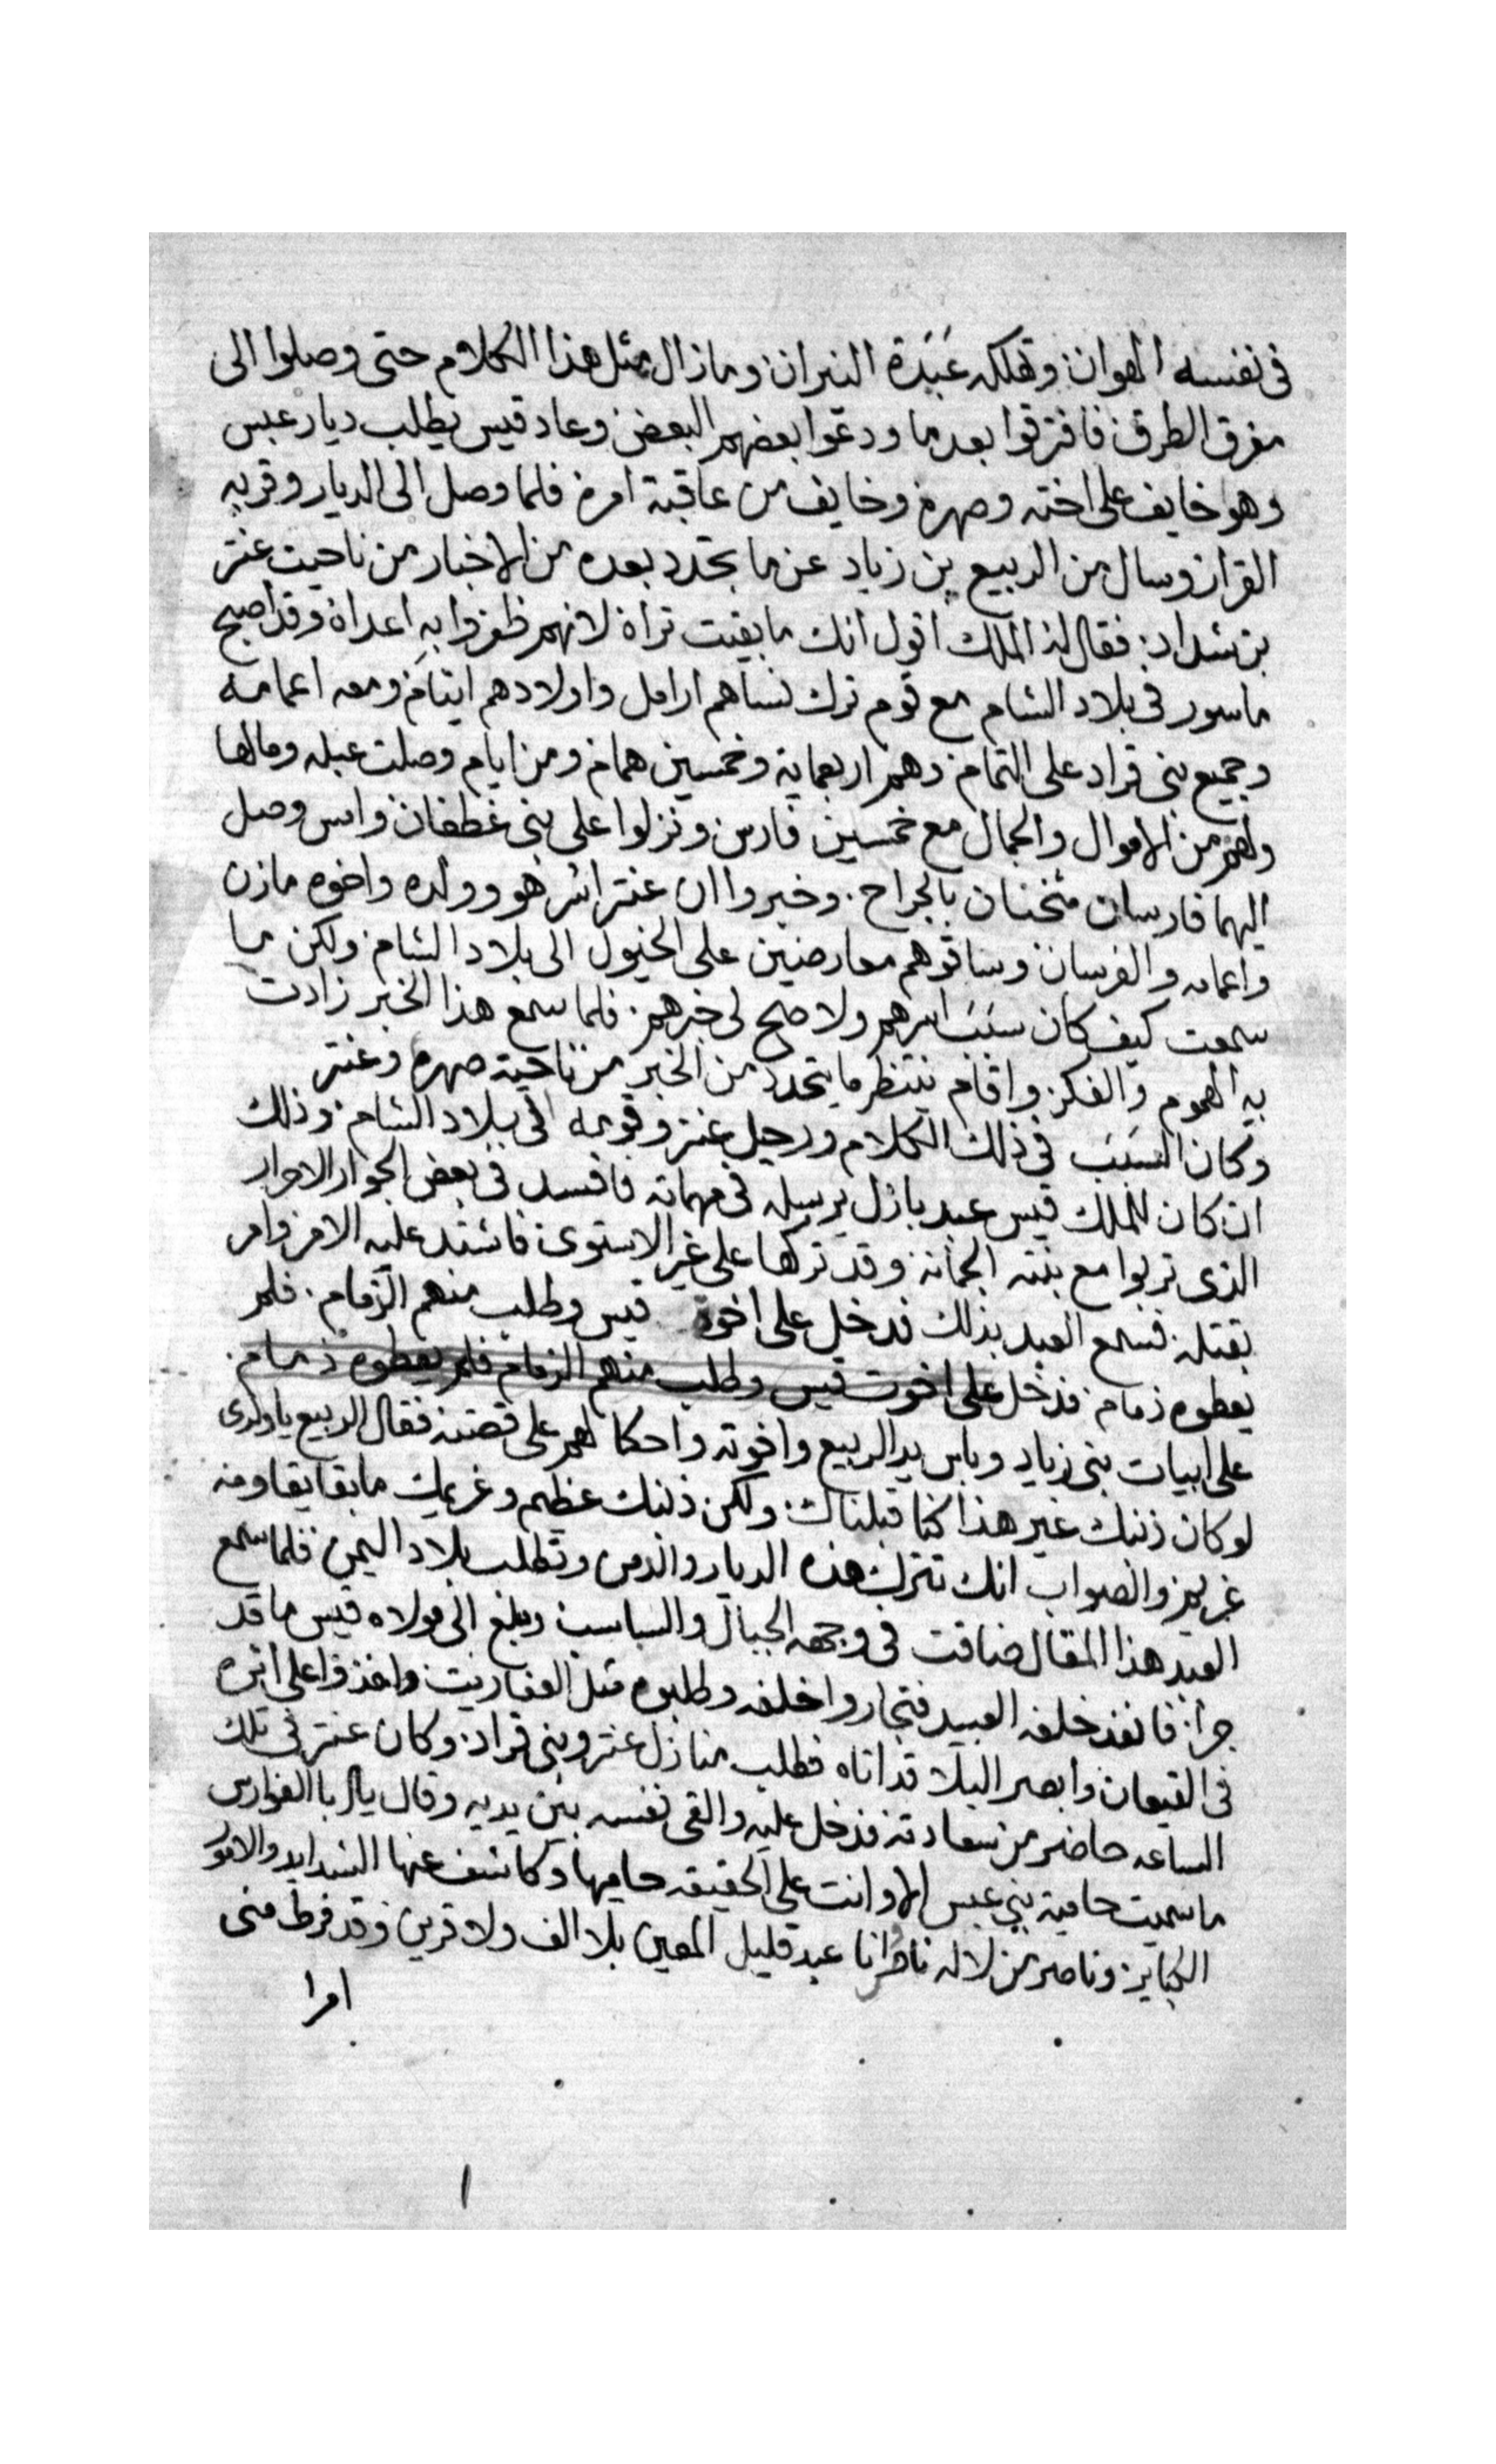 فى نفسه الهوان وتهلكه عَبَدَة النيران وما زال مثل هذا الكلام حتى وصلوا الى
مفرق الطرق فافترقوا بعدما ودعوا بعضهم البعض وعاد قيس يطلب ديار عبس
وهو خايف على اخته وصهره وخايف من عاقبة امره فلما وصل الى الديار وقر به
القرار وسال من الربيع بن زياد عن ما تجدد بعده من الاخبار من ناحيت عنتر
بن شداد فقال له الملك اقول انك ما بقيت تراه لانهم ظفروا به اعداه وقد اصبح
ماسور فى بلاد الشام مع قوم ترك نساهم ارامل واولادهم ايتام ومعه اعمامه
وجميع بنى قراد على التمام وهم اربعماية وخمسين همام ومن ايام وصلت عبله ومالها
ولهم من الاموال والجمال مع خمسين فارس ونزلوا على بنى غطفان وامس وصل
اليهما فارسان مثخنان بالجراح وخبروا ان عنتر اسر هو وولده واخوه مازن
واعمامه والفرسان وساقوهم معارضين على الخيول الى بلاد الشام ولكن ما
سمعت كيف كان سَبَب اسرهم ولا صح لى خبرهم فلما سمع هذا الخبر زادت
به الهموم والفكر واقام ينتظر ما يتجدد من الخبر من ناحية صهره وعنتر
وكان السَبَب فى ذلك الكلام ورحيل عنتر وقومه الى بلاد الشام وذلك
ان كان للملك قيس عبد بازل يرسله فى مهماته فافسد فى بعض الجوار الاحرار
الذى تربوا مع بنته الجمانه وقد تركها على غير الاستوى فاشتد عليه الامر وامر
بقتله فسمع العبد بذلك فدخل على اخوة قيس وطلب منهم الزمام فلم
يعطوه ذمام فدخل على اخوت قيس وطلب منهم الزمام فلم يعطوه ذمام
على ابيات بنى زياد وباس يد الربيع واخوته واحكا لهم على قصته فقال الربيع يا ولدى
لو كان ذنبك غير هذا كنا قبلناك ولكن ذنبك عظيم وغريمك ما بقا يقاومه
غريم والصواب انك تترك هذه الديار والدمن وتطلب بلاد اليمن فلما سمع
العبد هذا المقال ضاقت فى وجهه الجبال والسباسب وبلغ الى مولاه قيس ما قد
جرا فانفذ خلفه العبيد فتجاروا خلفه وطلبوه مثل العفاريت واخذوا على اثره
فى القيعان وابصر البلا قد اتاه فطلب منازل عنتر وبنى قراد وكان عنتر فى تلك
الساعه حاضر من سعادته فدخل عليه والقى نفسه بين يديه وقال يا ابا الفوارس
ما سميت حامية بنى عبس الا وانت على الحقيقه حاميها وكاشف عنها الشدايد والامور
الكباير وناصر من لا له ناصر انا عبد قليل المعين بلا الف ولا قرين وقد فرط منى
امرا